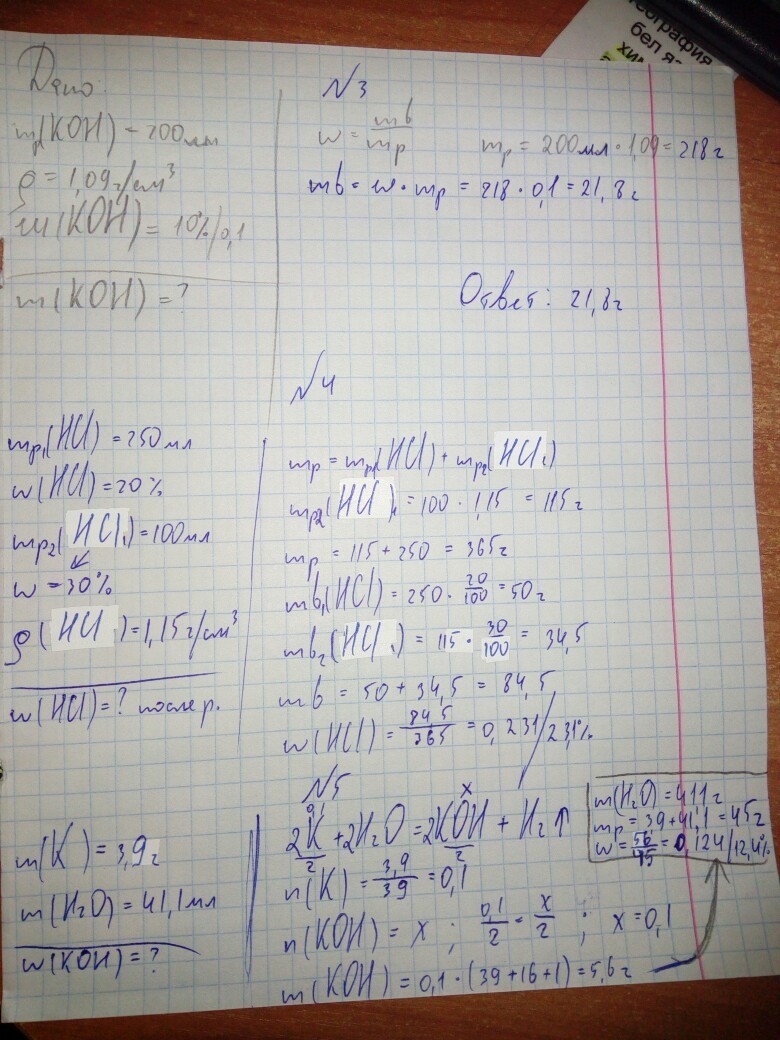 еография
бел яз
хим
Дано:
mр(KOH) - 200 мл
ρ = 1,09 г/см³
w(KOH) = 10%/0,1
m(KOH) = ?
N3
w = mв/mр
mр = 200мл · 1,09 = 218 г
mв = w · mр = 218 · 0,1 = 21,8 г
Ответ: 21,8 г
N4
mр₁(HCl) = 250 мл
w(HCl) = 20%
mр₂(HCl) = 100 мл
w = 30%
ρ(HCl) = 1,15 г/см³
w(HCl) = ? после р.
mр = mр₁(HCl) + mр₂(HCl)
mр₂(HCl) = 100 · 1,15 = 115 г
mр = 115 + 250 = 365 г
mв₁(HCl) = 250 · 20/100 = 50 г
mв₂(HCl) = 115 · 30/100 = 34,5
mв = 50 + 34,5 = 84,5
w(HCl) = 84,5/365 = 0,231/23,1%
N5
m(K) = 3,9 г
m(H₂O) = 41,1 мл
w(KOH) = ?
x
2K + 2H₂O = 2KOH + H₂↑
2 2
n(K) = 3,9/39 = 0,1
n(KOH) = x ; 0,1/2 = x/2 ; x = 0,1
m(KOH) = 0,1 · (39+16+1) = 5,6 г
m(H₂O) = 41,1 г
mр = 3,9 + 41,1 = 45 г
w = 5,6/45 = 0,124/12,4%